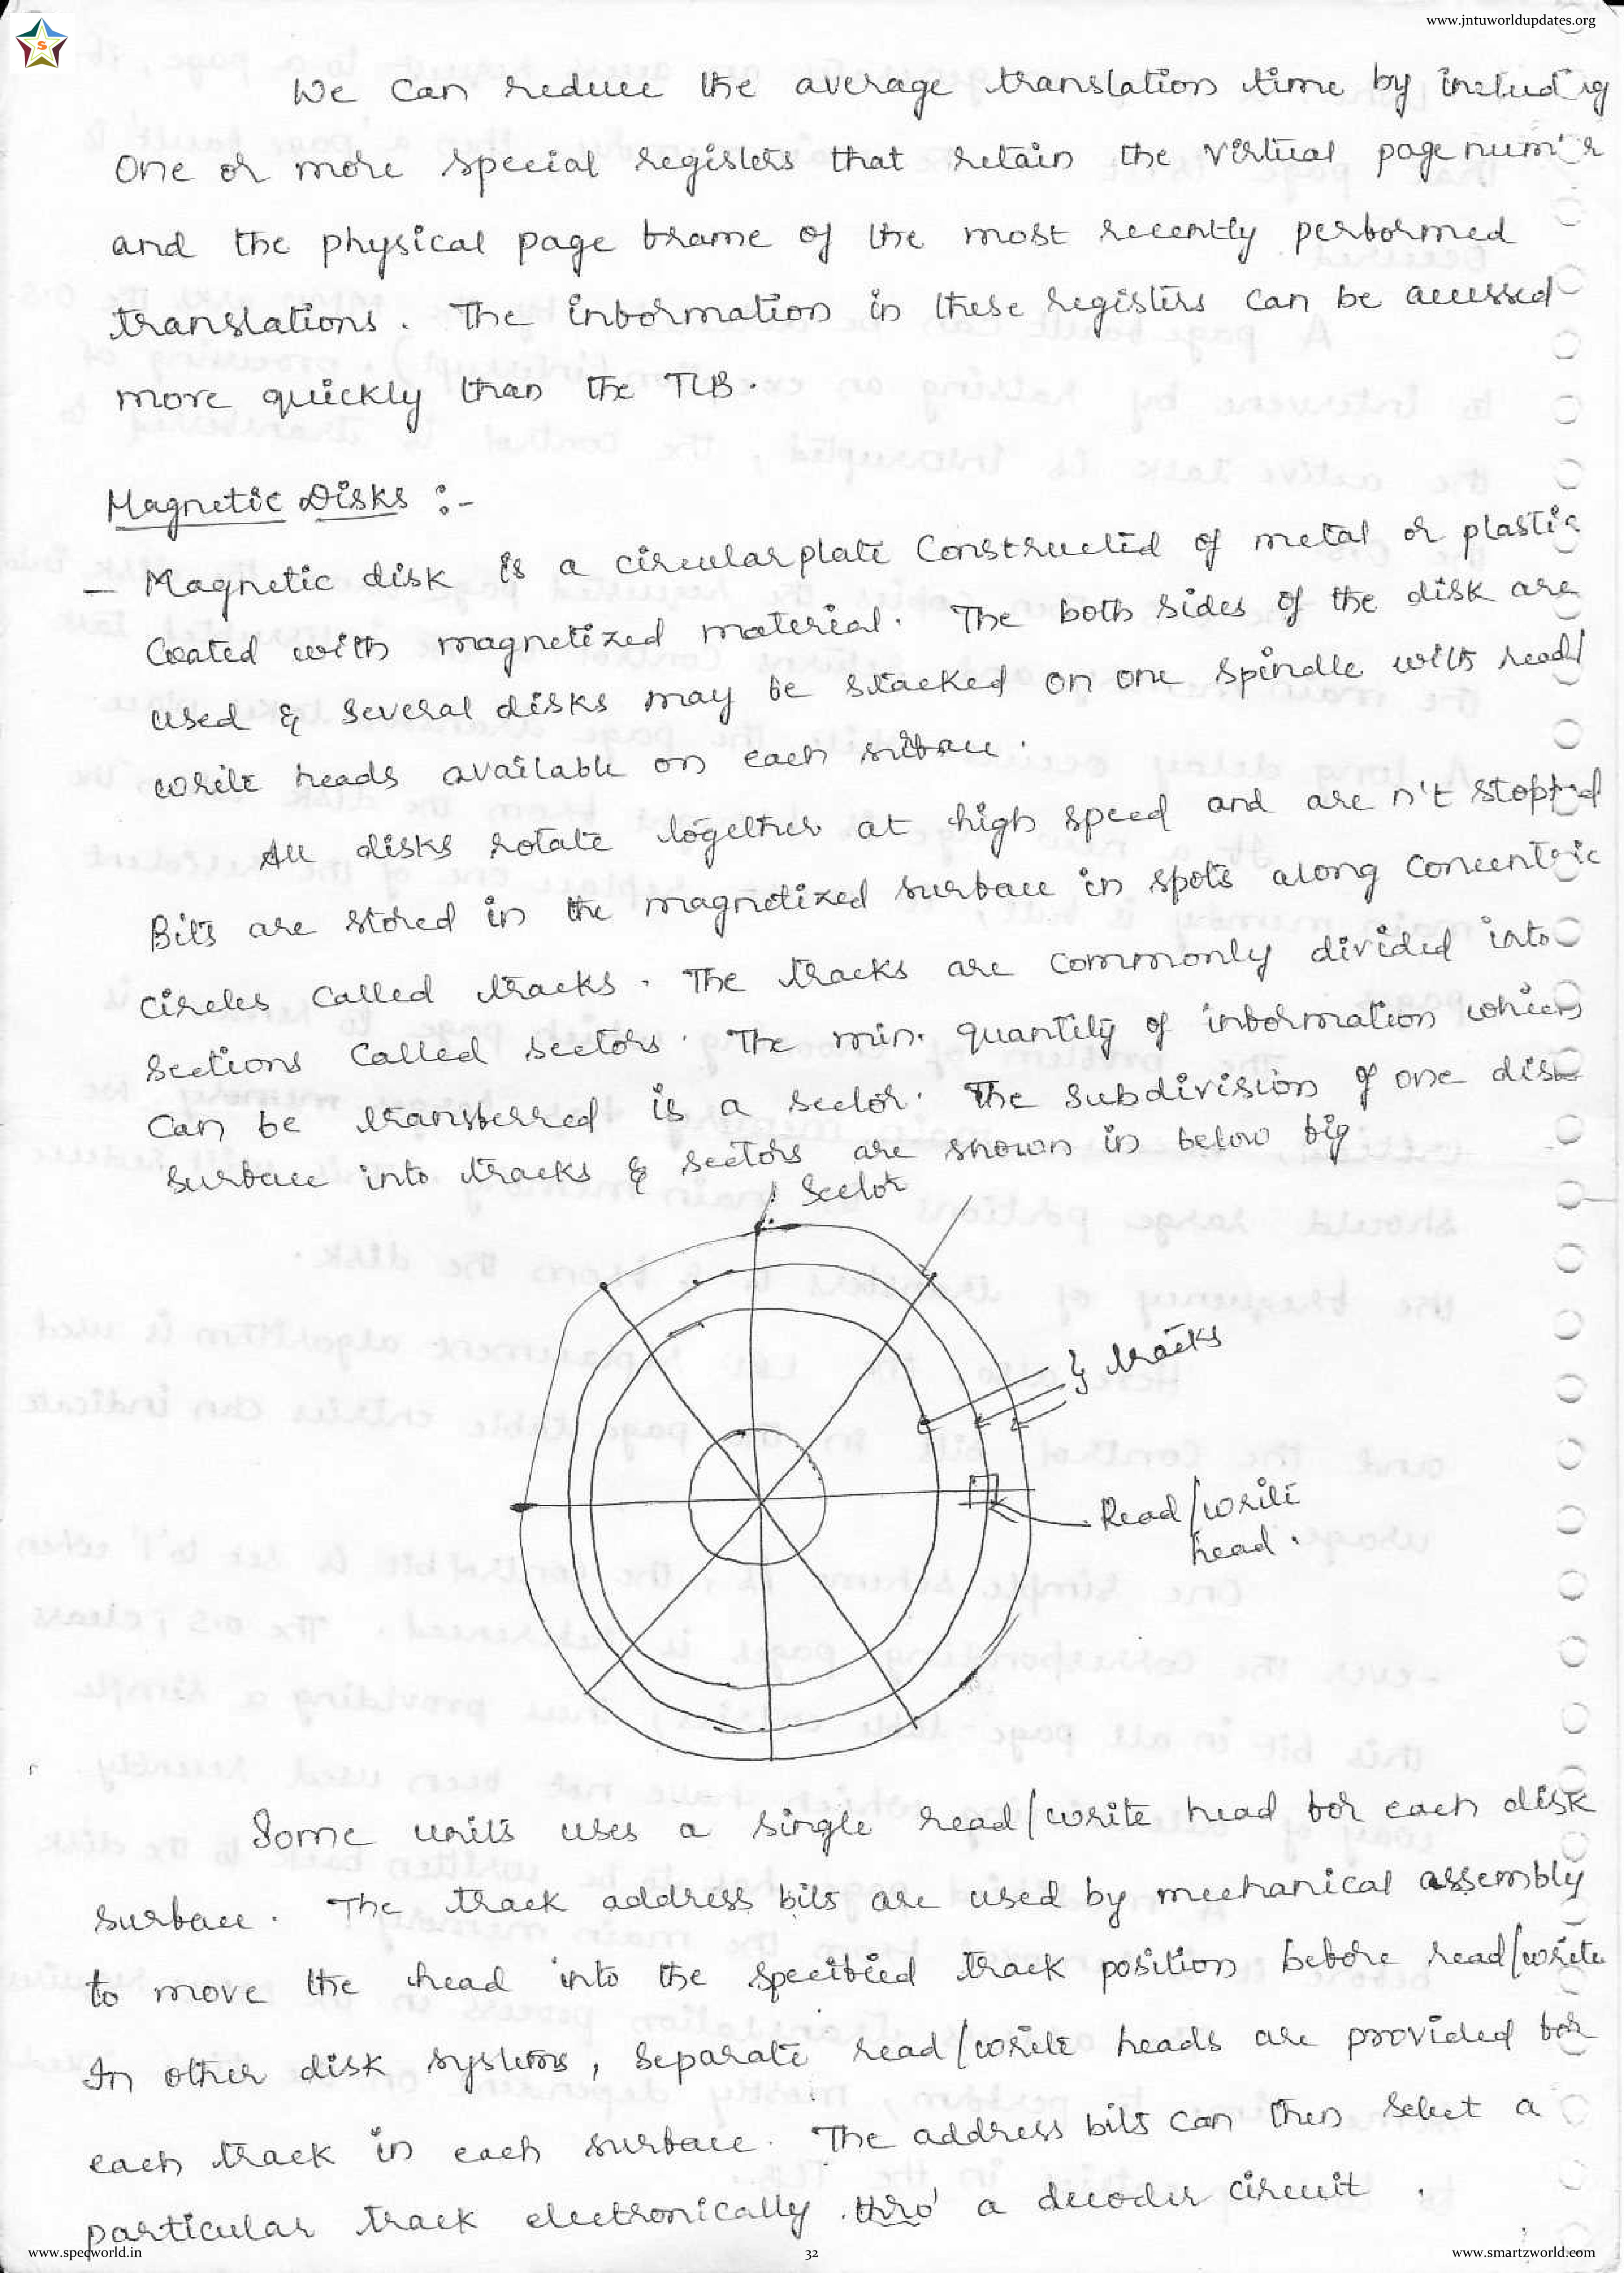 www.jntuworldupdates.org
S
We can reduce the average translation time by including
one or more special registers that retain the virtual page number
and the physical page frame of the most recently performed
translations. The information in these registers can be accessed
more quickly than the TLB.
Magnetic Disks :-
- Magnetic disk is a circular plate constructed of metal or plastic
coated with magnetized material. The both sides of the disk are
used & several disks may be stacked on one spindle with read/
write heads available on each surface.
All disks rotate together at high speed and are n't stopped
Bits are stored in the magnetized surface in spots along concentric
circles called tracks. The tracks are commonly divided into
sections called sectors. The min. quantity of information which
can be transferred is a sector. The subdivision of one disk
surface into tracks & sectors are shown in below fig
Sector
} tracks
Read/write
head.
Some units uses a single read/write head for each disk
surface. The track address bits are used by mechanical assembly
to move the head into the specified track position before read/write
In other disk systems, separate read/write heads are provided for
each track in each surface. The address bits can then select a
particular track electronically thro' a decoder circuit.
www.specworld.in
32
www.smartzworld.com